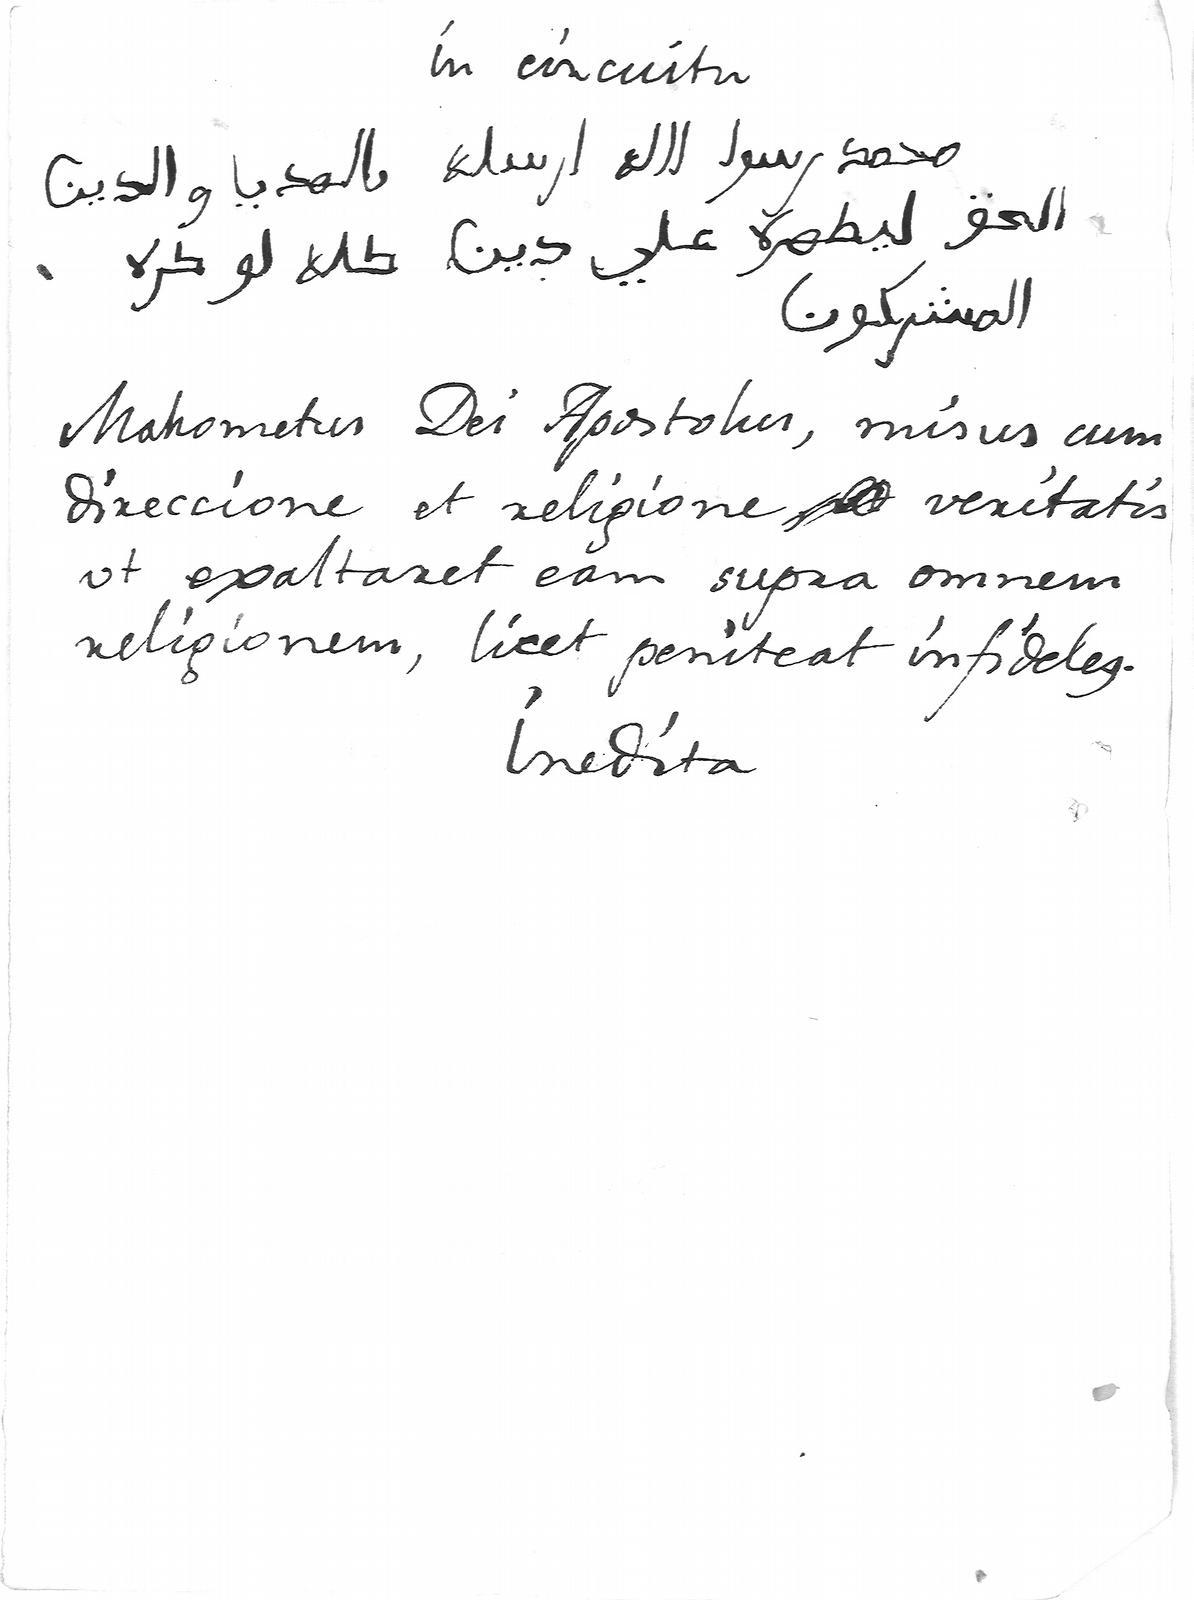 in circuitu
محمد رسول الله ارسله بالهديا والدين
الحق ليطهره علي دين كله لو كره
المشركون
Mahometus Dei Apostolus, misus cum
direccione et religione veritatis
ut exaltaret eam supra omnem
religionem, licet peniteat infideles.
Inedita